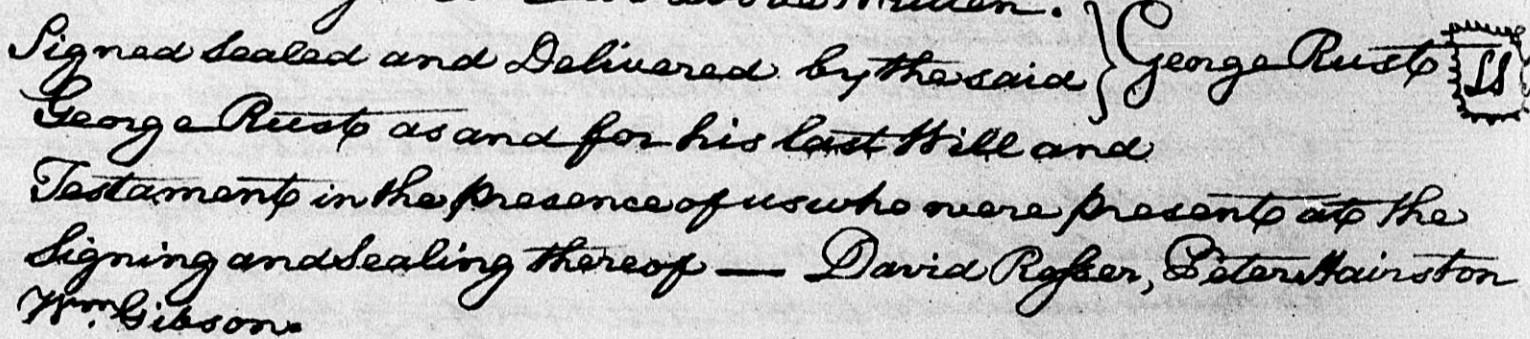 above written.
Signed Sealed and Delivered by the said } George Rust LS
George Rust as and for his last Will and
Testament in the presence of us who were present at the
Signing and Sealing thereof — David Rosser, Peter Hairston
Wm. Gibson.